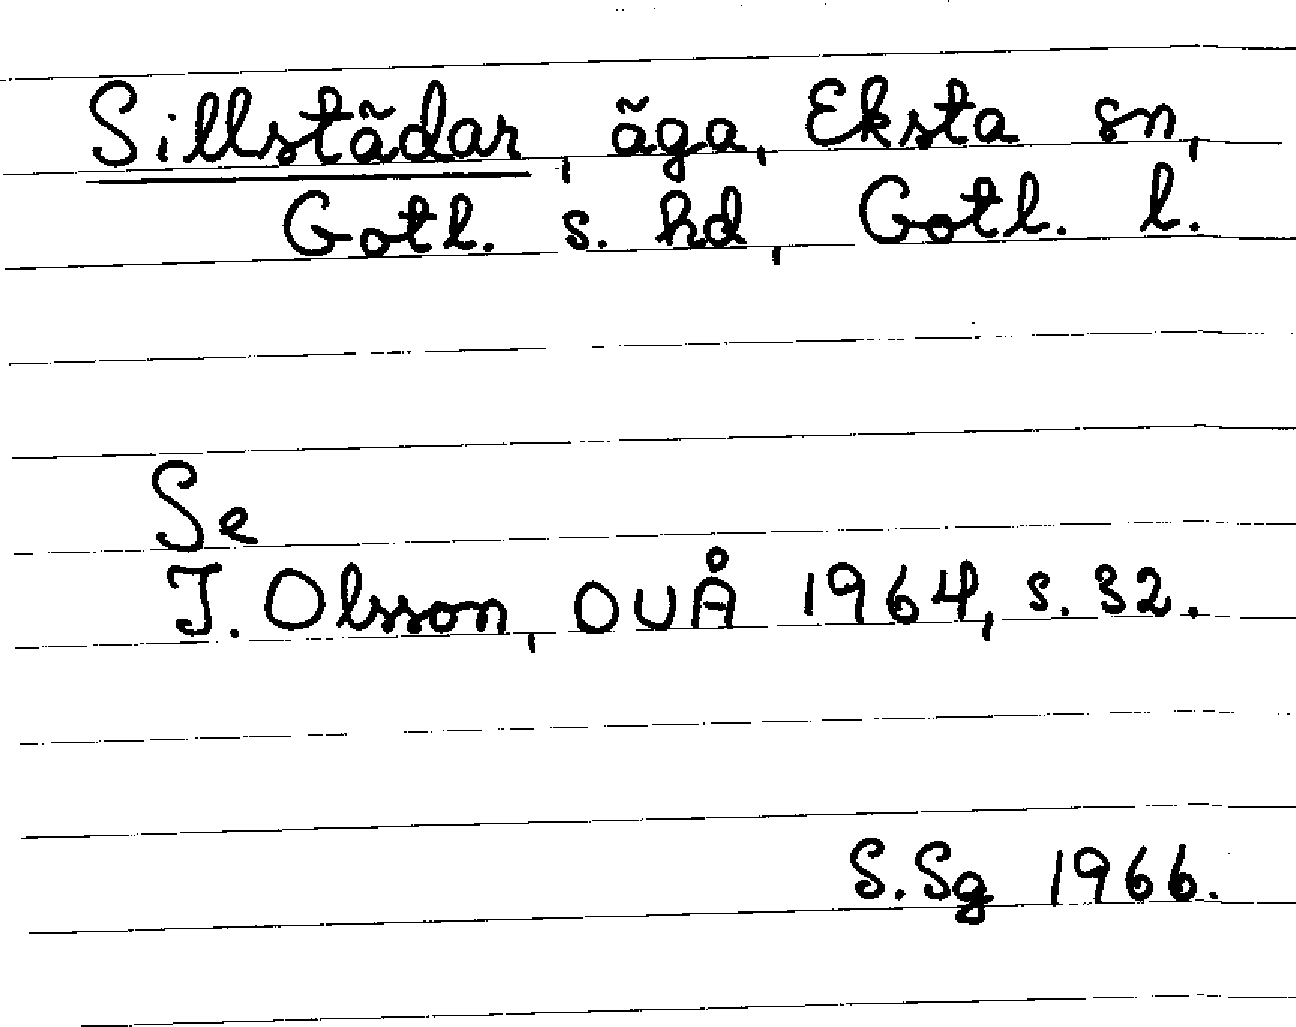 Sillstädar, äga, Eksta sn,
Gotl. s. hd, Gotl. l.
Se
I. Olsson, OUÅ 1964, s. 32.
S. Sg 1966.